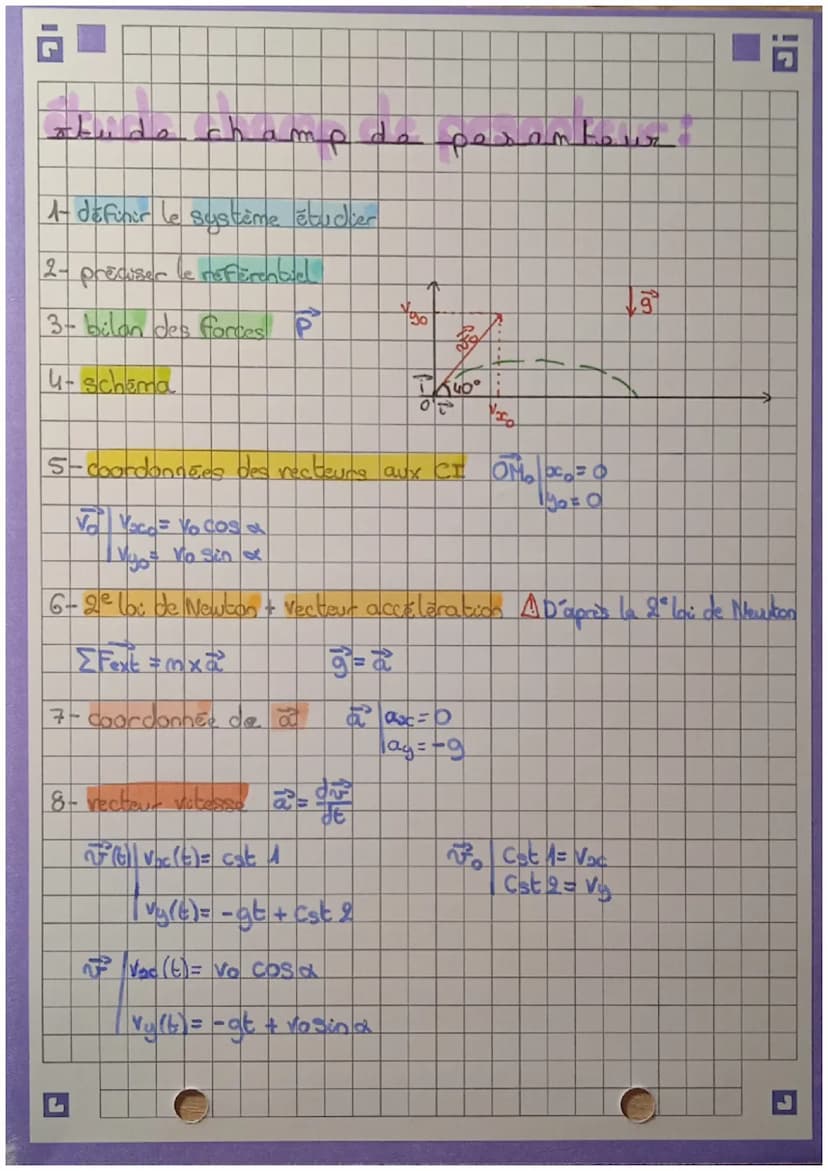 étude champ de pesanteur :
1- définir le système étudier
2- préciser le référentiel
3- bilan des forces P⃗
4- schéma
Vy0
V⃗0
↓g⃗
j⃗
40°
0
i⃗
Vx0
5- coordonnées des vecteurs aux CI OM⃗0 | x0 = 0
| y0 = 0
V⃗0 | Vx0 = V0 cos α
| Vy0 = V0 sin α
6- 2e loi de Newton + vecteur accélération ⚠ D'après la 2e loi de Newton
ΣF⃗ext = m x a⃗ g⃗ = a⃗
7- coordonnée de a⃗ a⃗ | ax = 0
| ay = -g
8- vecteur vitesse a⃗ = dv⃗/dt
v⃗(t) | Vx(t) = cst 1 v⃗0 | Cst 1 = Vx
| Cst 2 = Vy
| Vy(t) = -gt + Cst 2
v⃗ | Vx(t) = V0 cos α
| Vy(t) = -gt + V0 sin α